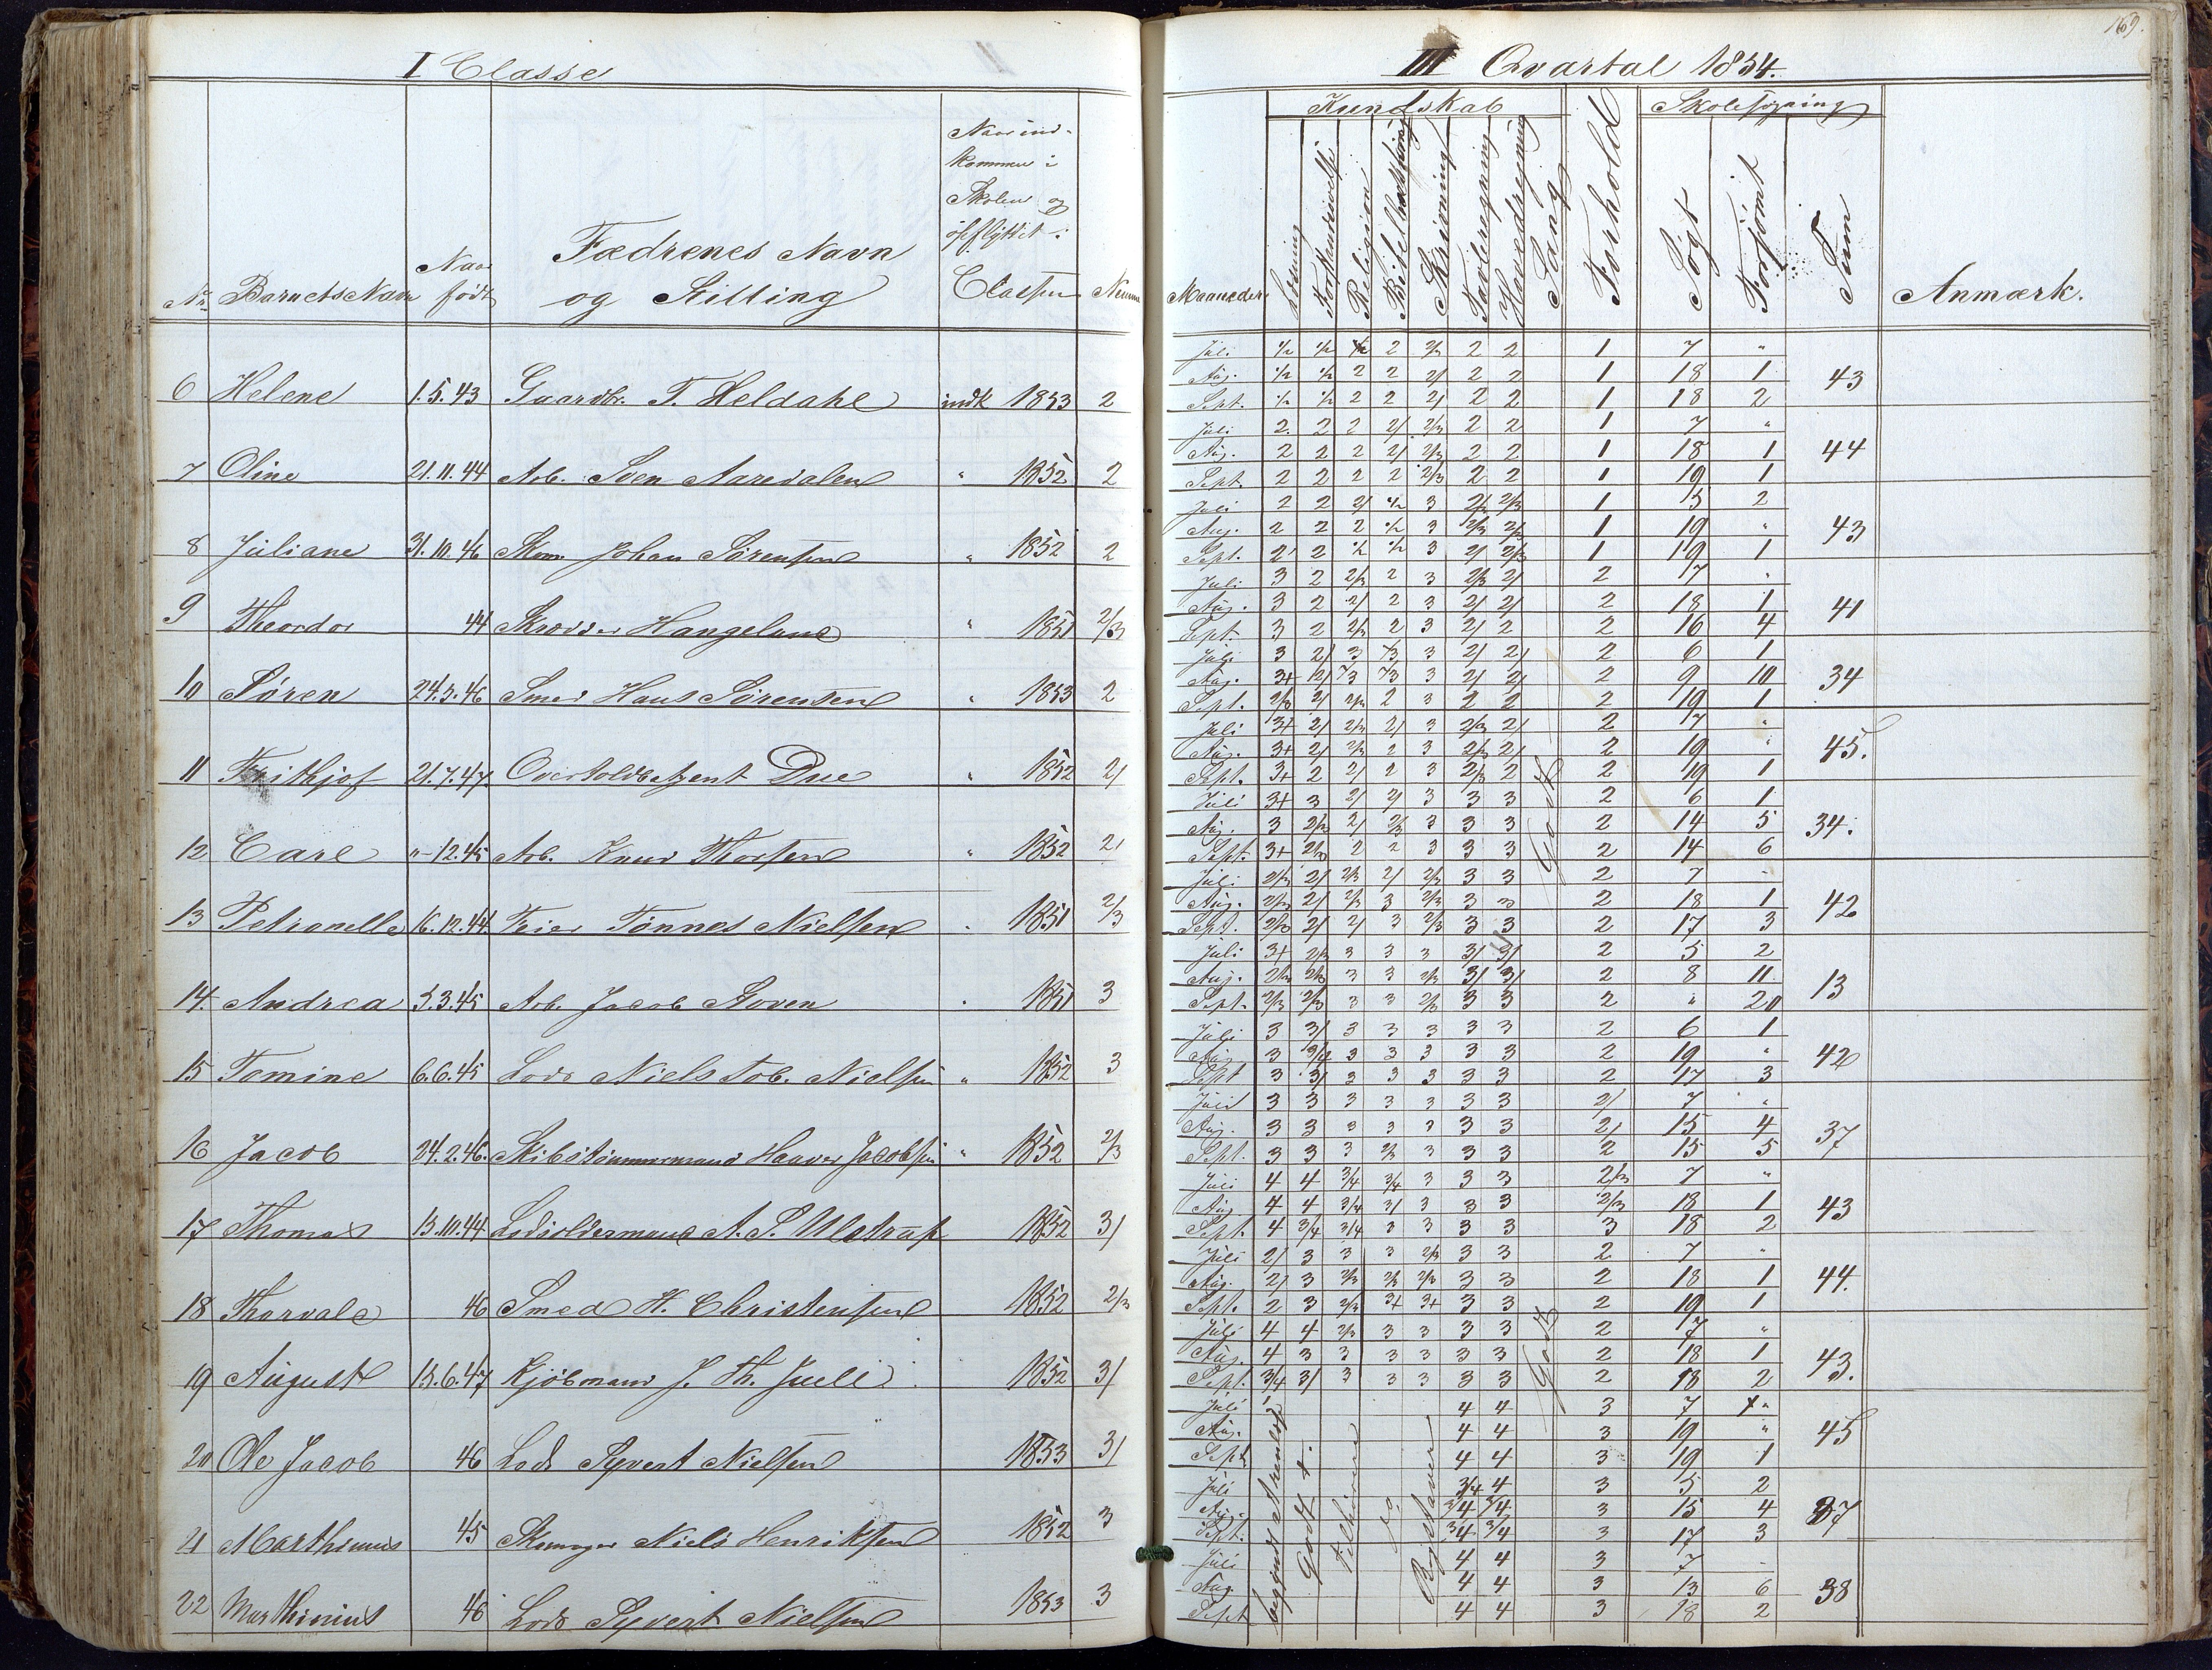 I Classe
No Barnets Navn Naar født Fædrenes Navn og Stilling Naar indkommen i Skolen og opflyttet i Classen Nemme
6 Helene 1.5.43 Gaardbr. T. Heldahl indk 1853 2
7 Oline 21.11.44 Arb. Sven Aaredalen " 1852 2
8 Juliane 31.10.46 Skom. Johan Sørensen " 1852 2
9 Theodor 44 Skrædder Hangeland " 1851 2/3
10 Søren 24.5.46 Smed Hans Sørensen " 1853 2
11 Frithjof 21.7.47. Overtoldbetjent Due " 1852 2/
12 Carl "-12.45 Arb. Knud Thorsen " 1852 2/
13 Petronelle 16.12.44 Feier Tønnes Nielsen " 1851 2/3
14. Andrea 5.3.45 Arb. Jacob Stoven " 1851 3
15 Tomine 6.6.45 Lods Niels Tob. Nielsen " 1852 3
16 Jacob 24.2.46. Skibstømmermand Haaver Jacobsen " 1852 2/3
17 Thomas 15.10.44 Lodsoldermand A. S. Ulstrup 1852 3/
18 Thorvald 46 Smed H. Christensen 1852 2/3
19 August 15.6.47 Kjøbmand J. Th. Juell 1852 3/
20 Ole Jacob 46 Lods Syvert Nielsen 1853 3/
21 Marthinius 45 Skomager Niels Henriksen 1852 3
22 Marthinius 46 Lods Syvert Nielsen 1853 3
169.
III Qvartal 1854.
Kundskab Skolesøgning
Maaneder Læsning Forstandsøvelse Religion Bibelhistorie Skrivning Tavleregning Hovedregning Sang Forhold Søgt Forsømt Sum Anmærk.
Juli 1/2 1/2 1/2 2 2/3 2 2 1 7 "
Aug. 1/2 1/2 2 2 2/ 2 2 1 18 1 43
Sept. 1/2 1/2 2 2 2/ 2 2 1 18 2
Juli 2 2 2 2/ 2/3 2 2 1 7 "
Aug. 2 2 2 2/ 2/3 2 2 1 18 1 44
Sept. 2 2 2 2 2/3 2 2 1 19 1
Juli 2 2 2/ 1/2 3 2/3 2/3 1 5 2
Aug. 2 2 2 1/2 3 2/3 2/3 1 19 " 43
Sept. 2 2 1/2 1/2 3 2/ 2/3 1 19 1
Juli 3 2 2/3 2 3 2/3 2/ 2 17 "
Aug. 3 2 2/ 2 3 2/ 2/ 2 18 1 41
Sept. 3 2 2/3 2 3 2/ 2 2 16 4
Juli 3 2/ 3 2/3 3 2/ 2/ 2 6 1
Aug. 3+ 2/ 2/3 2/3 3 2/ 2/ 2 9 10 34
Sept. 2/3 2/ 2/3 2 3 2 2 2 19 1
Juli 3+ 2/ 2/3 2/ 3 2/3 2/ 2 17 "
Aug. 3+ 2/ 2/3 2 3 2/3 2/ 2 19 " 45.
Sept. 3+ 2 2/ 2 3 2/3 2 2 19 1
Juli 3+ 3 2/ 2/ 3 3 3 2 6 1
Aug. 3 2/3 2/ 2/3 3 3 3 2 14 5 34.
Sept. 3+ 2/3 2 2 3 3 3 Godt 2 14 6
Juli 2/3 2/ 2/3 2/ 2/3 3 3 2 7 "
Aug. 2/3 2/ 2/3 3 2/3 3 3 2 18 1 42
Sept. 2/3 2/ 2/ 3 2/3 3 3 2 17 3
Juli 3+ 2/3 3 3 3 3/ 3/ 2 5 2
Aug. 2/3 2/3 3 3 2/3 3/ 3/ 2 8 11 13
Sept. 2/3 2/3 3 3 2/3 3 3 2 " 20
Juli 3 3/ 3 3 3 3 3 2 6 1
Aug. 3 3/ 3 3 3 3 3 2 19 " 42
Sept 3 3/ 3 3 3 3 3 2 17 3
Juli 3 3 3 3 3 3 3 2/ 7 "
Aug. 3 3 3 3 3 3 3 2/ 15 4 37
Sept. 3 3 3 2/3 3 3 3 2 15 5
Juli 4 4 3/4 3/4 3 3 3 2/3 7 "
Aug. 4 4 3/4 3/ 3 3 3 2/3 18 1 43
Sept. 4 3/4 3/4 3 3 3 3 3 18 2
Juli 2/ 3 3 3 2/3 3 3 2 7 "
Aug. 2/ 3 2/3 2/3 2/3 3 3 2 18 1 44.
Sept. 2 3 2/3 3+ 3+ 3 3 2 19 1
Juli 4 4 2/3 3 3 3 3 2 7 "
Aug. 4 3 3 3 3 3 3 Godt 2 18 1 43.
Sept. 3/4 3/ 3 3 3 3 3 2 18 2
Juli 4 4 3 7 "
Aug. 4 4 3 19 " 45
Sept. 4 4 3 19 1
Juli 3/4 4 3 5 2
Aug. 3/4 3/4 3 15 4 37
Sept. 3/4 3/4 3 17 3
Juli 4 4 3 7 -
Aug. 4 4 3 13 6 38
Sept 4 4 3 18 2
Godt +.
Tilhørere
Bogstaver